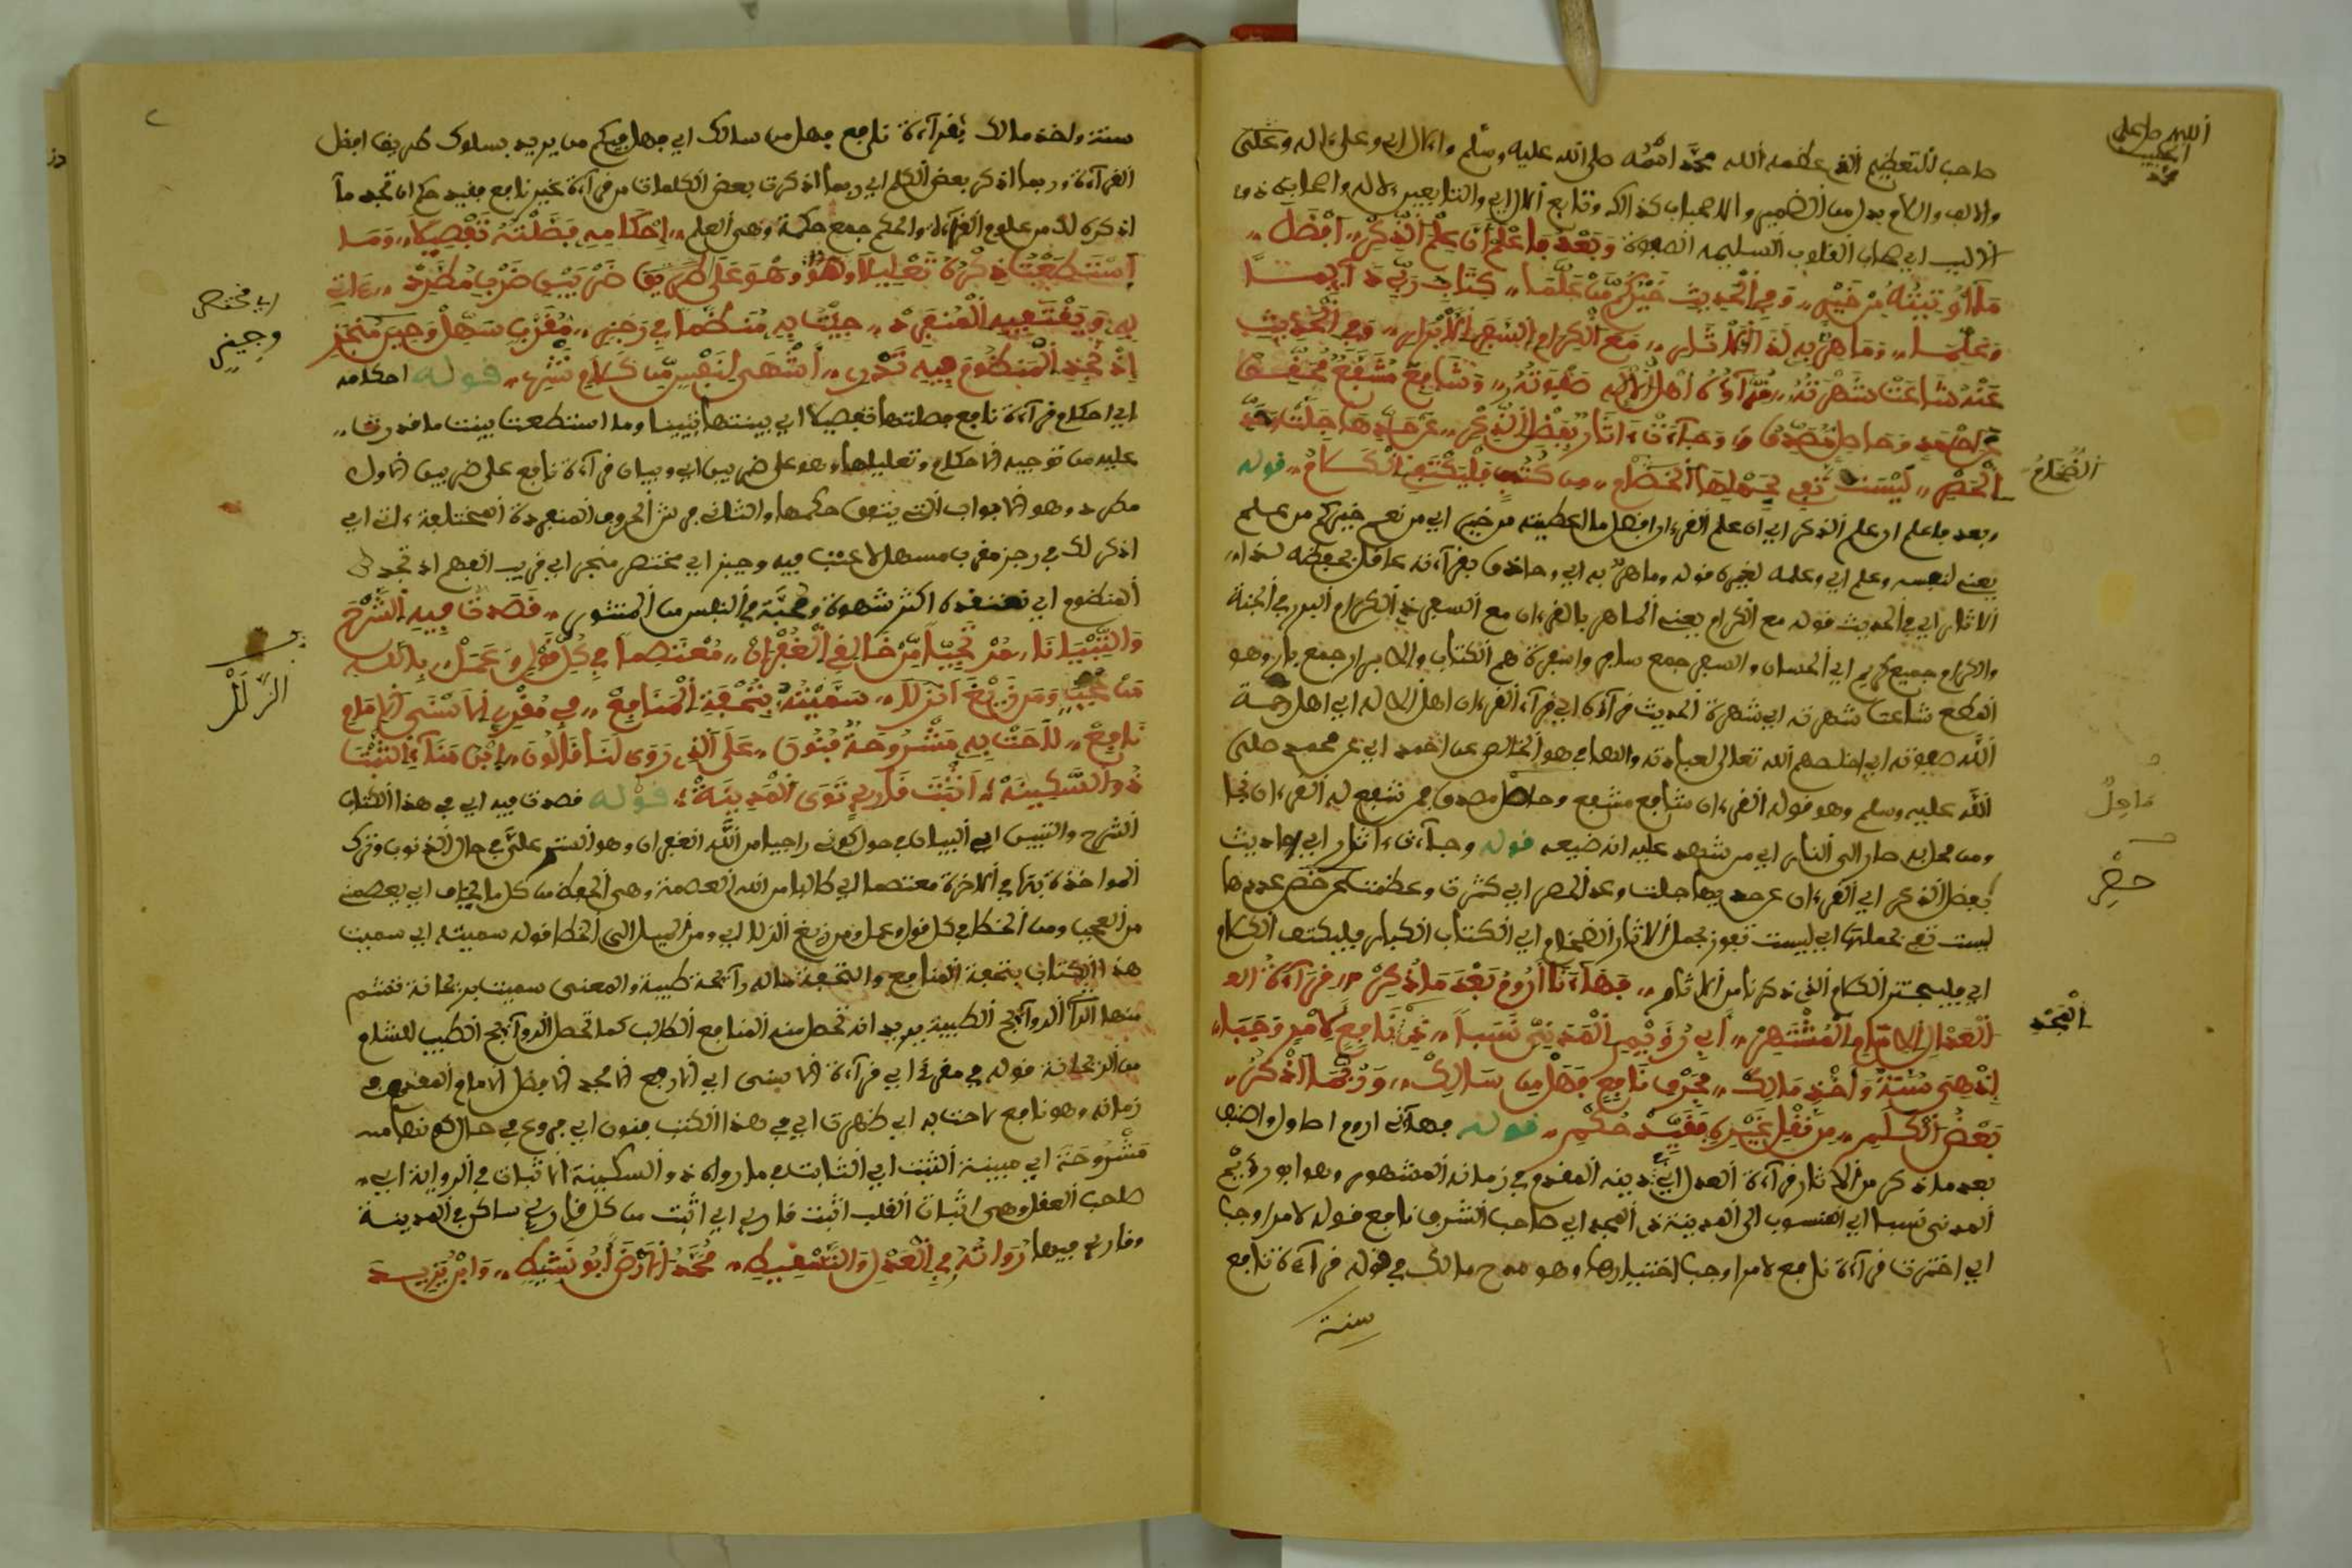 صاحب التعظيم الذي عظمه الله محمد اسمه صلى الله عليه وسلم وعلى ءاله وعلى
اللهم صل على الحبيب محمد
وبعد فاعلم أن علم الذكر أفضل
ما أوتيته من خير وفي الحديث خيركم من علما كتاب ربي دايما
وعلما وما هر به لذا الامثال مع الكرام السفر الأبرار وفي الحديث
عنه شاعت شهرته قرآؤه أهل الإله صفوته وشافع مشفع
عن أحمد وماحل مصدق وجاءت ءاثار بفضل الذكر عن حدها جلت وعد
الحصر ليست تفي بحملها الضخام من كتب فليكتف الكلام قوله
الضخام
وبعد فاعلم ان علم الذكر اي ان علم القرءان افضل ما اعطيته من خير اي من نعم خيركم من علم
يعني لنفسه وعلم اي وعلمه لغيره قوله وما هر به اي وحاذق بقرآءته عاقل بحفظه
الاثار اي في الحديث قوله مع الكرام يعني الماهر بالقرءان مع السفر ذي الكرام البرر في الجنة
والكرام جميع كريم اي الحسان والسفر جمع سافر والسفرة هم الكتاب والابرار جمع بار وهو
المطيع شاعت شهرته اي شهرة الحديث قرآؤه اي قرآء القرءان اهل الاله اي اهل رحمة
الله صفوته اي اخلصهم الله تعالى لعبادته والصافي هو الخالص عن احمد اي عن محمد صلى
الله عليه وسلم وهو قوله القرءان شافع مشفع وماحل مصدق من شفع له القرءان نجا
ماحل
ومن محل به صار الى النار اي من شهد عليه انه ضيعه قوله وجاءت ءاثار اي احاديث
بفضل الذكر اي القرءان عن حد يها جلت وعد الحصر اي كثرت وعظمت عن حصر عددها
حصر
ليست تفي بحملها اي ليست تفوز بحمل الاثار الضخام اي الكتاب الكبار فليكتف الكلام
اي فليستتر الكلام الذي ذكرنا من الاثار فهاءنا أروم بعد ما ذكر قرآءة
العدل الامام المشتهر أبي رؤيم المدني نسبا ذي نافع لامر وجبا
المجد
إذ هي سنة وأخذ مالك بحرف نافع فهل من سالك وربما أذكر
بعض الكلم من نقل غيره مفيد حكم قوله فهآنا اروم احاول واطلب
بعد ما ذكر من الاثار قرآءة العدل اي دينه المقدم في زمانه المشهور وهو ابو رؤيم
المدني نسبا اي المنسوب الى المدينة ذي المجد اي صاحب الشرف نافع قوله لامر وجبا
اي اخترت قرآءة نافع لامر اوجب اختيارها وهو مدح مالك في قوله قرآءة نافع
سنة
سنة واخذ مالك بقرآءة نافع فهل من سالك اي فهل فيكم من يريد بسلوك طريق افضل
القرآءة وربما اذكر بعض الكلم اي ربما اذكرت بعض الكلمات من قرآءة غير نافع مفيد حكم ان تجد ما
اذكره لك من علوم القرآءة والحكم جمع حكمة وهي العلم احكامه فصلته تفصيلا وما
استطعت ذكره تعليلا وهو على طريق ضربين ضرب مطرد ءاتي
به ويقتفيه المنفرد جئت به منظما في رجز مقرب سهل وجيز منجز
اي مختصر
وجيز
إذ تجد المنظوم فيه تدر أشهى لنفس من كلام نثر قوله احكامه
اي احكام قرآءة نافع فصلتها تفصيلا اي بينتها تبيينا وما استطعت بينت ما قدرت
عليه من توجيه الاحكام وتعليلها وهو على ضربين اي وبيان قرآءة نافع على ضربين الاول
مطرد وهو الابواب التي يتفق حكمها والثاني فرش الحروف المنفردة المختلفة ءات اي
اذكر لك في رجز مقرب مسهل لا عنت فيه وجيز اي مختصر منجز اي قريب الفهم اذ تجد
المنظوم اي تعتقده اكثر شهوة ومحبة في النفس من المنثور قصدت فيه الشرح
والتبيينا راجيا من خالقي الغفران معتصما في كل قول وعمل بالله
من عجب ومن زيغ الزلل سميته بتحفة المنافع في مقرإ الأسنى الإمام
الزلل
نافع لاحت به مشروحة فنون على الذي روى لنا قالون
ذو السكينه أثبت قارئ ثوى المدينه قوله قصدت فيه اي في هذا الكتاب
الشرح والتبيين اي البيان في حول كوني راجيا من الله الغفران وهو الستر علي في حال الذنوب وترك
المواخذة بها في الاخرة معتصما اي طالبا من الله العصمة وهي الحفظ من كل ما يخاف اي يعصمني
من العجب ومن الخطا في كل قول وعمل ومن زيغ الزلل اي ومن الميل الى الخطا قوله سميته اي سميت
هذا الكتاب بتحفة المنافع والتحفة ما له رآئحة طيبة والمعنى سميت بريحانة تشتم
منها الرآئحة الطيبة يريد انه تحصل منه المنافع للطالب كما تحصل الروآئح الطيب للشام
من الريحانة قوله في مقرإ اي قرآءة الاسنى اي الارفع الامجد الافضل الامام المقدم في
زمانه وهو نافع لاحت به اي ظهرت اي في هذا الكتب فنون اي فروع في حال كونها
مشروحة اي مبينة الثبت اي الثابت في ما رواه ذو السكينة الاثبات في الرواية اي
صاحب العقل وهي اثبات القلب اثبت قارئ اي اثبت من كل قارئ ساكن في المدينة
وقارئ فيها رواته في العدل والتسقيط محمد الأرضى أبو نشيط وابن يزيد